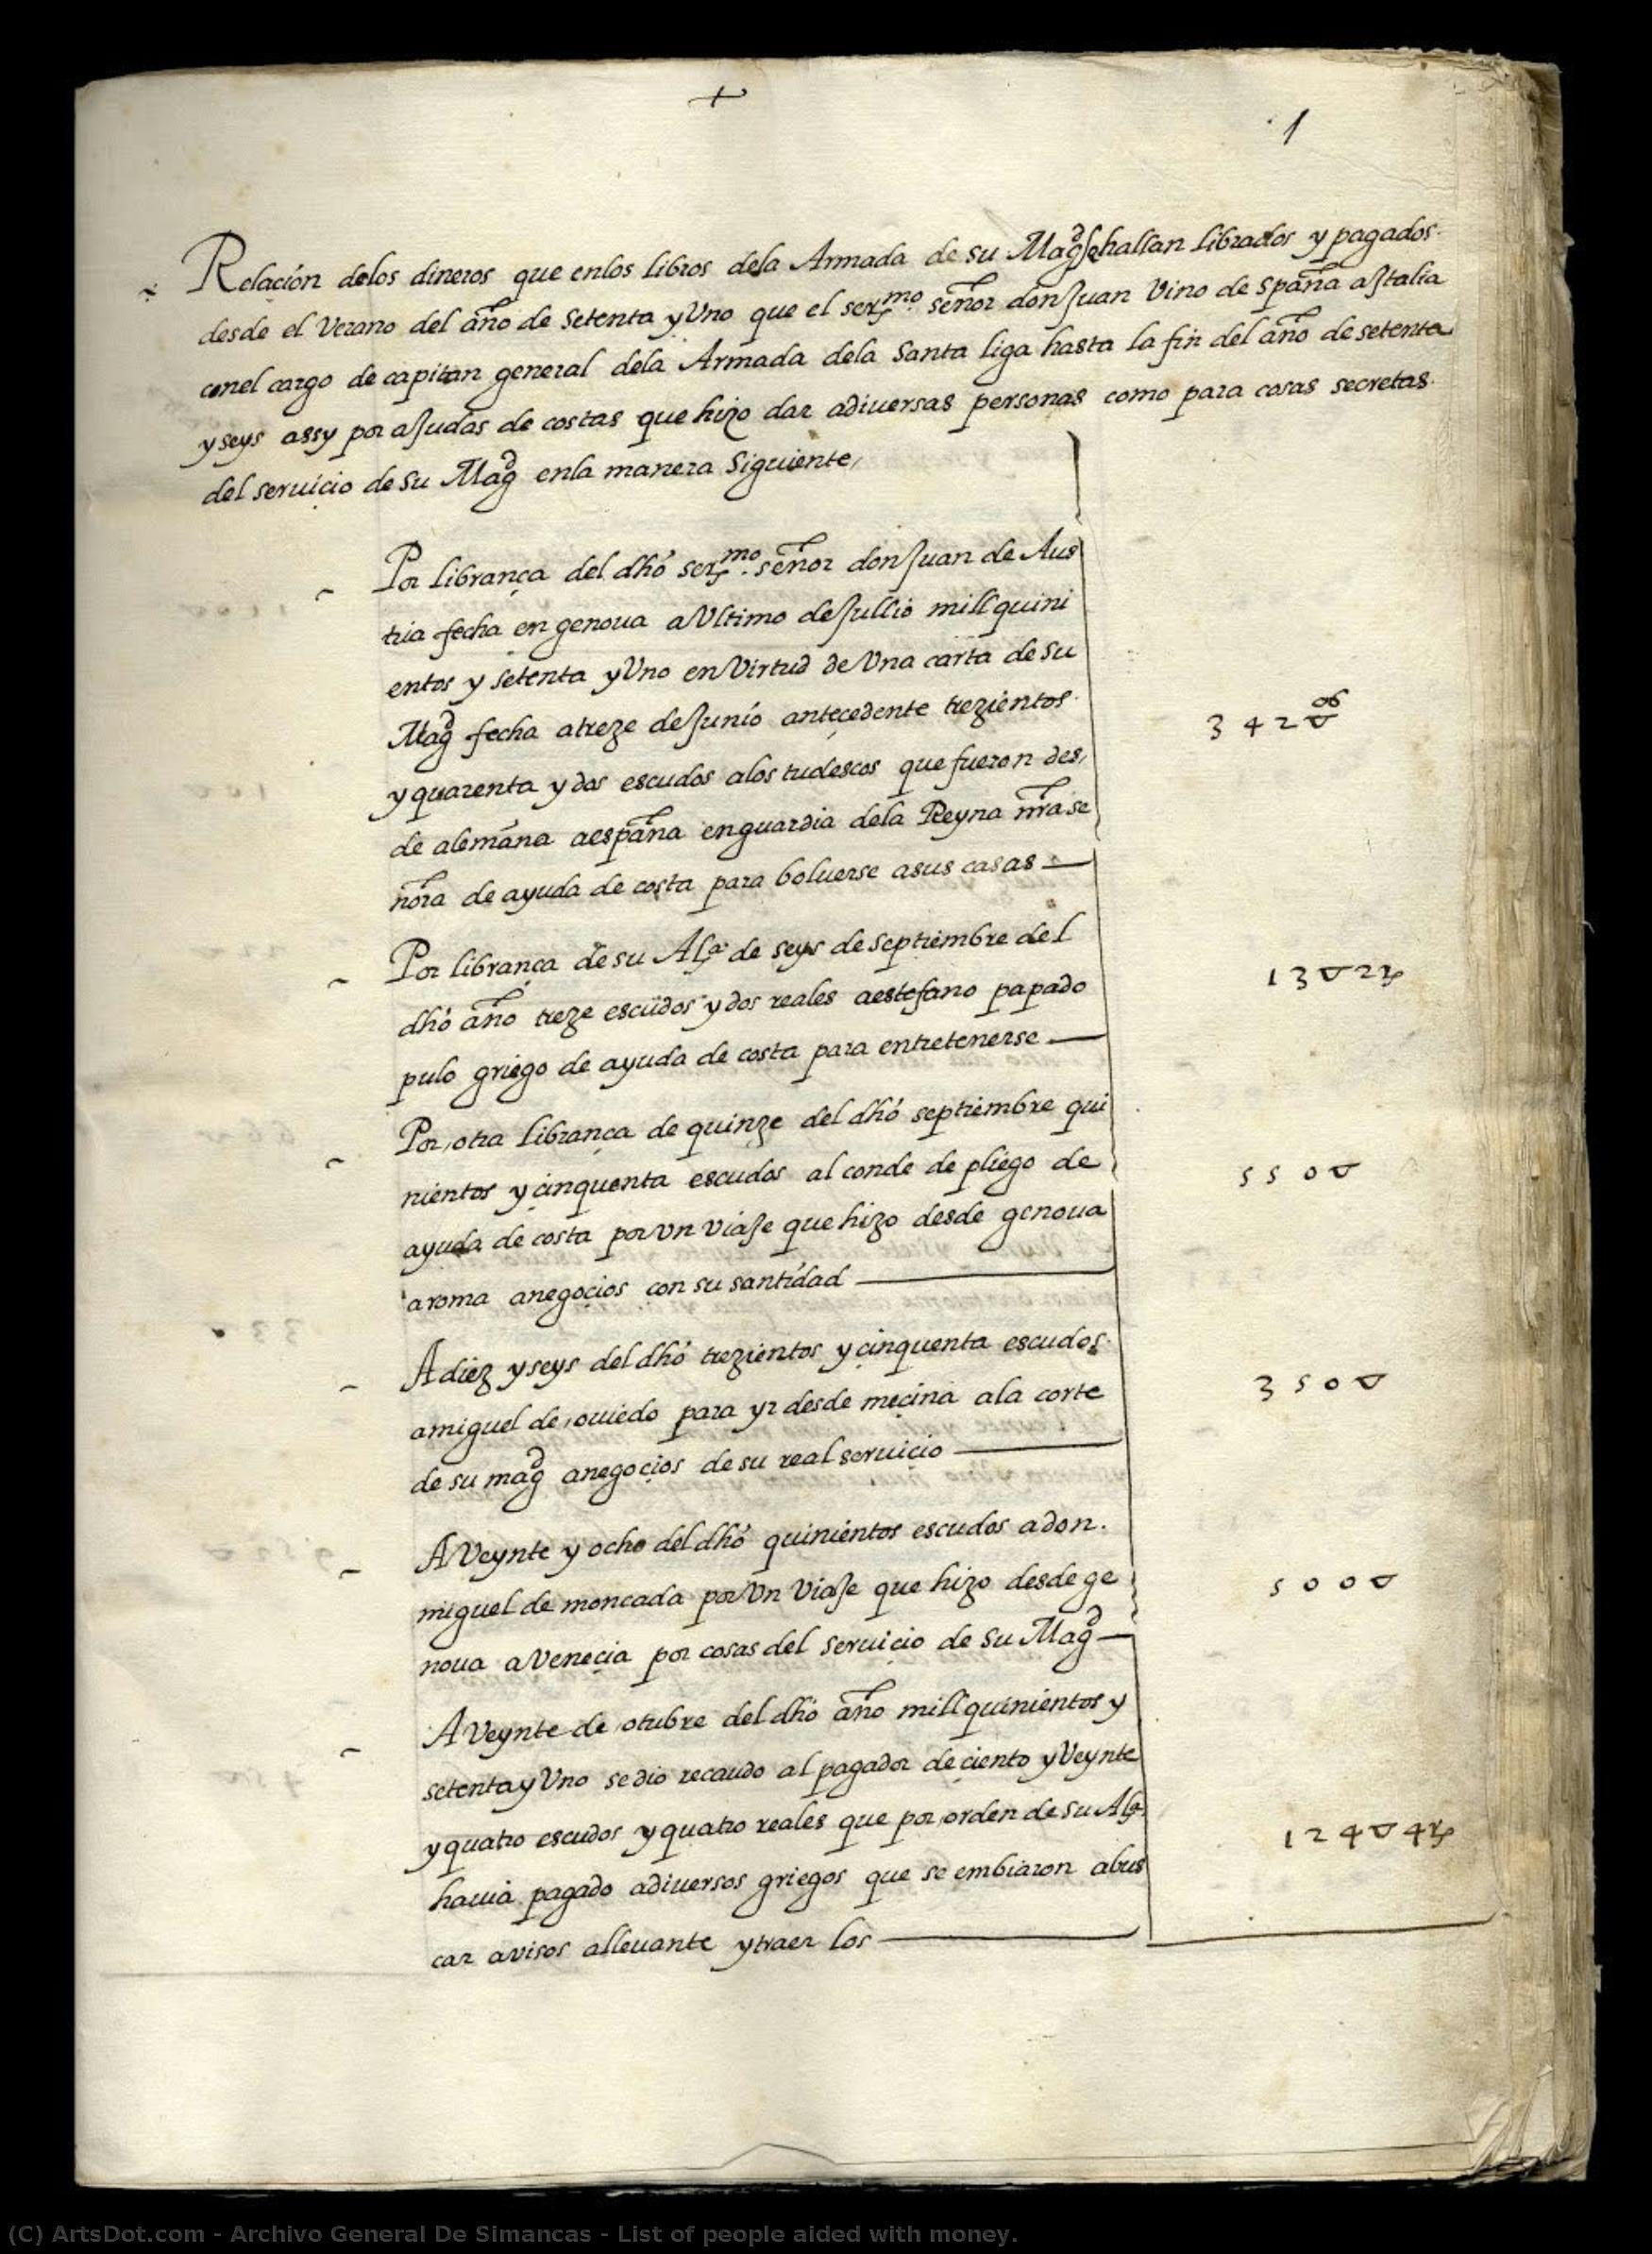 +
1
Relación delos dineros que enlos libros dela Armada de su Magd se hallan librados y pagados
desde el Verano del año de setenta y Vno que el sermo. señor don Juan Vino de spaña a Italia
conel cargo de capitan general dela Armada dela santa liga hasta la fin del año de setenta
y seys assy por aJudas de costas que hizo dar adiuersas personas como para cosas secretas
del seruicio de su Magd enla manera siguiente,
Por librança del dhó sermo. señor don Juan de Aus
tria fecha en genoua a Vltimo de Jullio mill quini
entos y setenta y Vno en Virtud de Vna carta de su
Magd fecha atreze de Junio antecedente trezientos
y quarenta y dos escudos alos tudescos que fueron des,
de alemána aespaña enguardia dela Reyna nra se
ñora de ayuda de costa para boluerse asus casas
342▽
Por librança de su Alª de seys de septiembre del
dhó año treze escudos y dos reales aestefano papado
pulo griego de ayuda de costa para entretenerse
13▽2rs
Por, otra librança de quinze del dhó septiembre qui
nientos y çinquenta escudos al conde de pliego de
ayuda de costa por Vn viaJe que hizo desde genoua
aroma anegoçios con su santidad
550▽
A diez y seys del dhó trezientos y çinquenta escudos
amiguel de, ouiedo para yr desde meçina ala corte
de su magd anegoçios de su real seruicio
350▽
A Veynte y ocho del dhó quinientos escudos adon.
miguel de moncada por Vn ViaJe que hizo desde ge
noua a Veneçia por cosas del seruiçio de su Magd
500▽
A Veynte de otubre del dhó año mill quinientos y
setenta y Vno se dio recaudo al pagador de çiento y Veynte
y quatro escudos y quatro reales que por orden de su Alª
hauia pagado adiuersos griegos que se embiaron abus
car avisos alleuante y traer los
124▽4rs
(C) ArtsDot.com - Archivo General De Simancas - List of people aided with money.